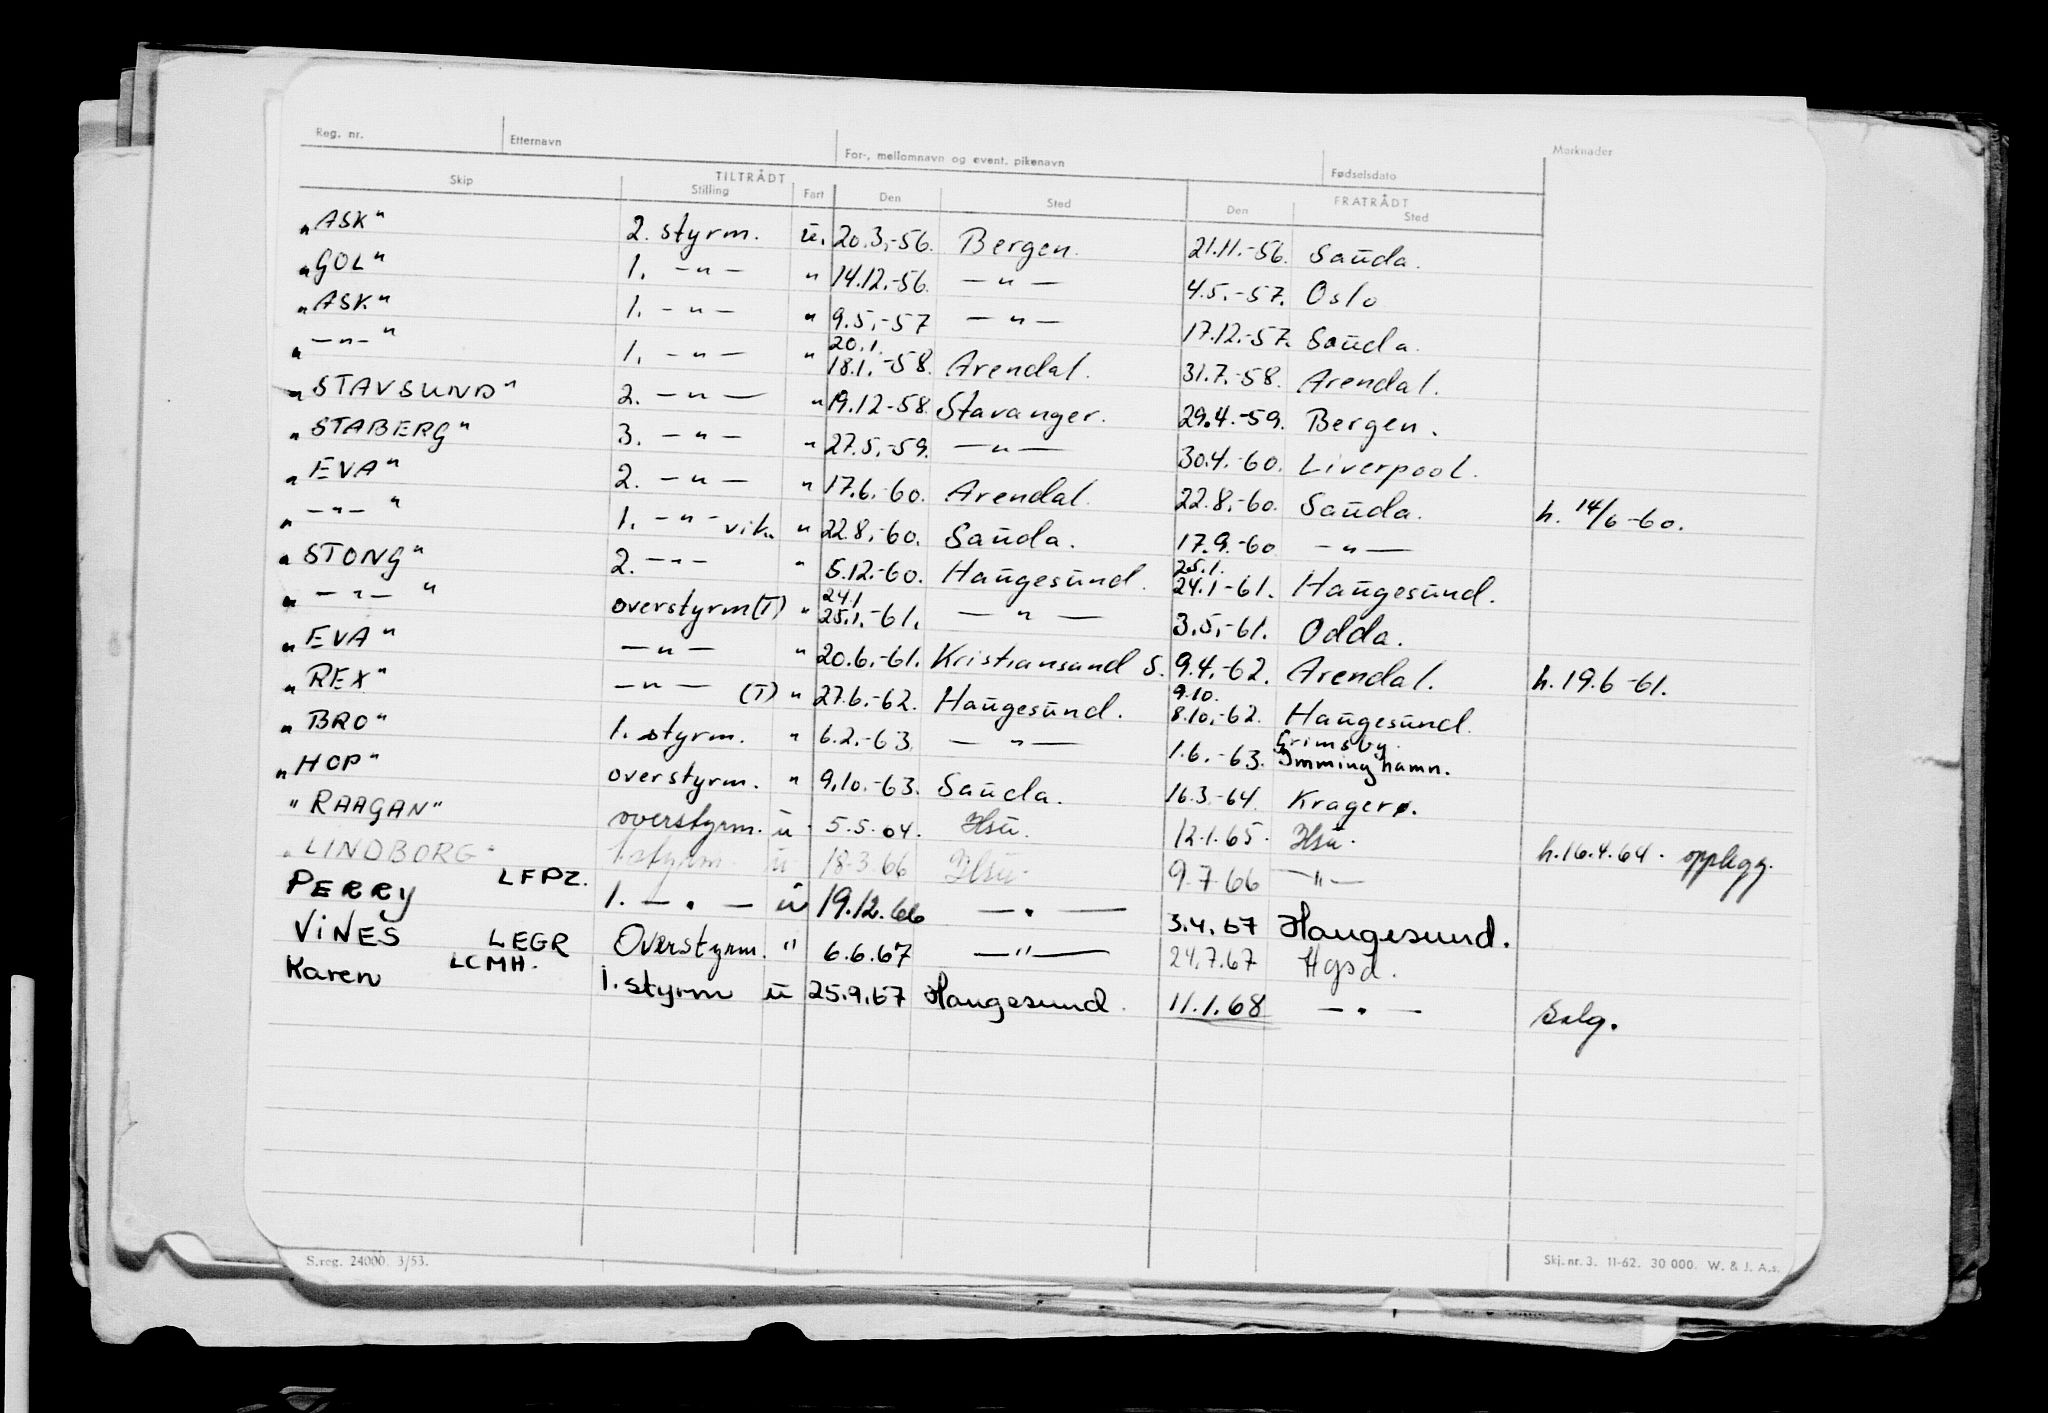 Reg. nr. Etternavn For-, mellomnavn og event. pikenavn Fødselsdato Merknader
Skip TILTRÅDT Stilling Fart Den Sted FRATRÅDT Den Sted
"ASK" 2. styrm. ū. 20.3.-56. Bergen. 21.11.-56. Saūda.
"GOL" 1. -"- " 14.12.-56. -"- 4.5.-57. Oslo
"ASK" 1. -"- " 9.5.-57 -"- 17.12.-57. Saūda.
"-"-" 1. -"- " 20.1. 18.1.-58. Arendal. 31.7.-58. Arendal.
"STAVSUND" 2. -"- " 19.12-58. Stavanger. 29.4.-59. Bergen.
"STABERG" 3. -"- " 27.5.-59. -"- 30.4.-60. Liverpool.
"EVA" 2. -"- " 17.6.-60. Arendal. 22.8.-60. Saūda. h. 14/6-60.
"-"-" 1. -"- vik. " 22.8.-60. Saūda. 17.9.-60 -"-
"STONG" 2. -"- " 5.12.-60. Haūgesūnd. 25.1. 24.1-61. Haūgesūnd.
"-"-" overstyrm(T) " 24.1 25.1.-61. -"- 3.5.-61. Odda.
"EVA" -"- " 20.6.-61. Kristiansand S. 9.4.-62. Arendal. h. 19.6-61.
"REX" -"- (T) " 27.6.-62. Haūgesūnd. 9.10. 8.10.-62. Haūgesūnd.
"BRO" 1. styrm. " 6.2.-63. -"- 1.6.-63. Grimsby. Imminghamn.
"HOP" overstyrm. " 9.10.-63. Saūda. 16.3.-64. Kragerø.
"RAAGAN" overstyrm. ū 5.5.64. Hsū. 12.1.65. Hsū. h.16.4.64. opplegg.
"LINDBORG" 1.styrm. ū 18.3.66 Hsū. 9.7.66 -"-
PERRY LFPZ. 1. -"- ū 19.12.66 -"- 3.4.67 Haugesund.
VINES LEGR Overstyrm. " 6.6.67 -"- 24.7.67 Hgsd.
Karen LCMH. 1. styrm ū 25.9.67 Haugesund. 11.1.68 -"- Salg.
S.reg. 24000. 3/53. Skj. nr. 3. 11-62. 30 000. W. & J. A.s.